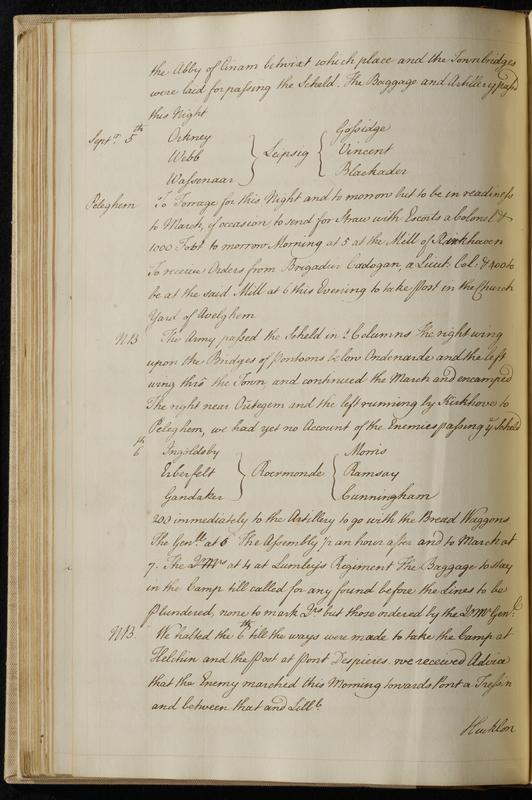 the Abby of Einam betwixt which place and the Town bridges
were laid for passing the Scheld. The Baggage and Artillery pass'd
this Night
Septr. 5th Orkney Gossidge
Webb Leipsig Vincent
Wassenaar Blackader
Peleghem To Forrage for this Night and to morrow but to be in readiness
to March, if occasion to send for Straw with Escorts a Colonel &
1000 Foot to morrow Morning at 5 at the Mill of Kirkhoven
To receive Orders from Brigadier Cadogan, a Lieut. Col: & 400 to
be at the said Mill at 6 this Evening to take Post in the Church
Yard of Avelghem
NB The Army passed the Scheld in 2 Columns the right wing
upon the Bridges of Pontoons below Oudenarde and the left
wing thro' the Town and continued the March and encamped
The right near Ootegem and the left running by Kerkhove to
Peleghem, we had yet no Account of the Enemies passing ye Scheld
6th Ingoldsby Morris
Erberfelt Roermonde Ramsay
Gandaker Cunningham
200 immediately to the Artillery to go with the Bread Waggons
The Genll. at 6 The Assembly ½ an hour after and to March at
7. The QrMrs at 4 at Lumley's Regiment The Baggage to stay
in the Camp till called for any found before the Lines to be
Plundered, none to mark Qrs. but those ordered by the QrMr Genl.
NB. We halted the 6th till the ways were made to take the Camp at
Helchin and the Post at Pont Despieres. we received Advice
that the Enemy marched this Morning towards Pont a Tressin
and between that and Lille.
Hucklon